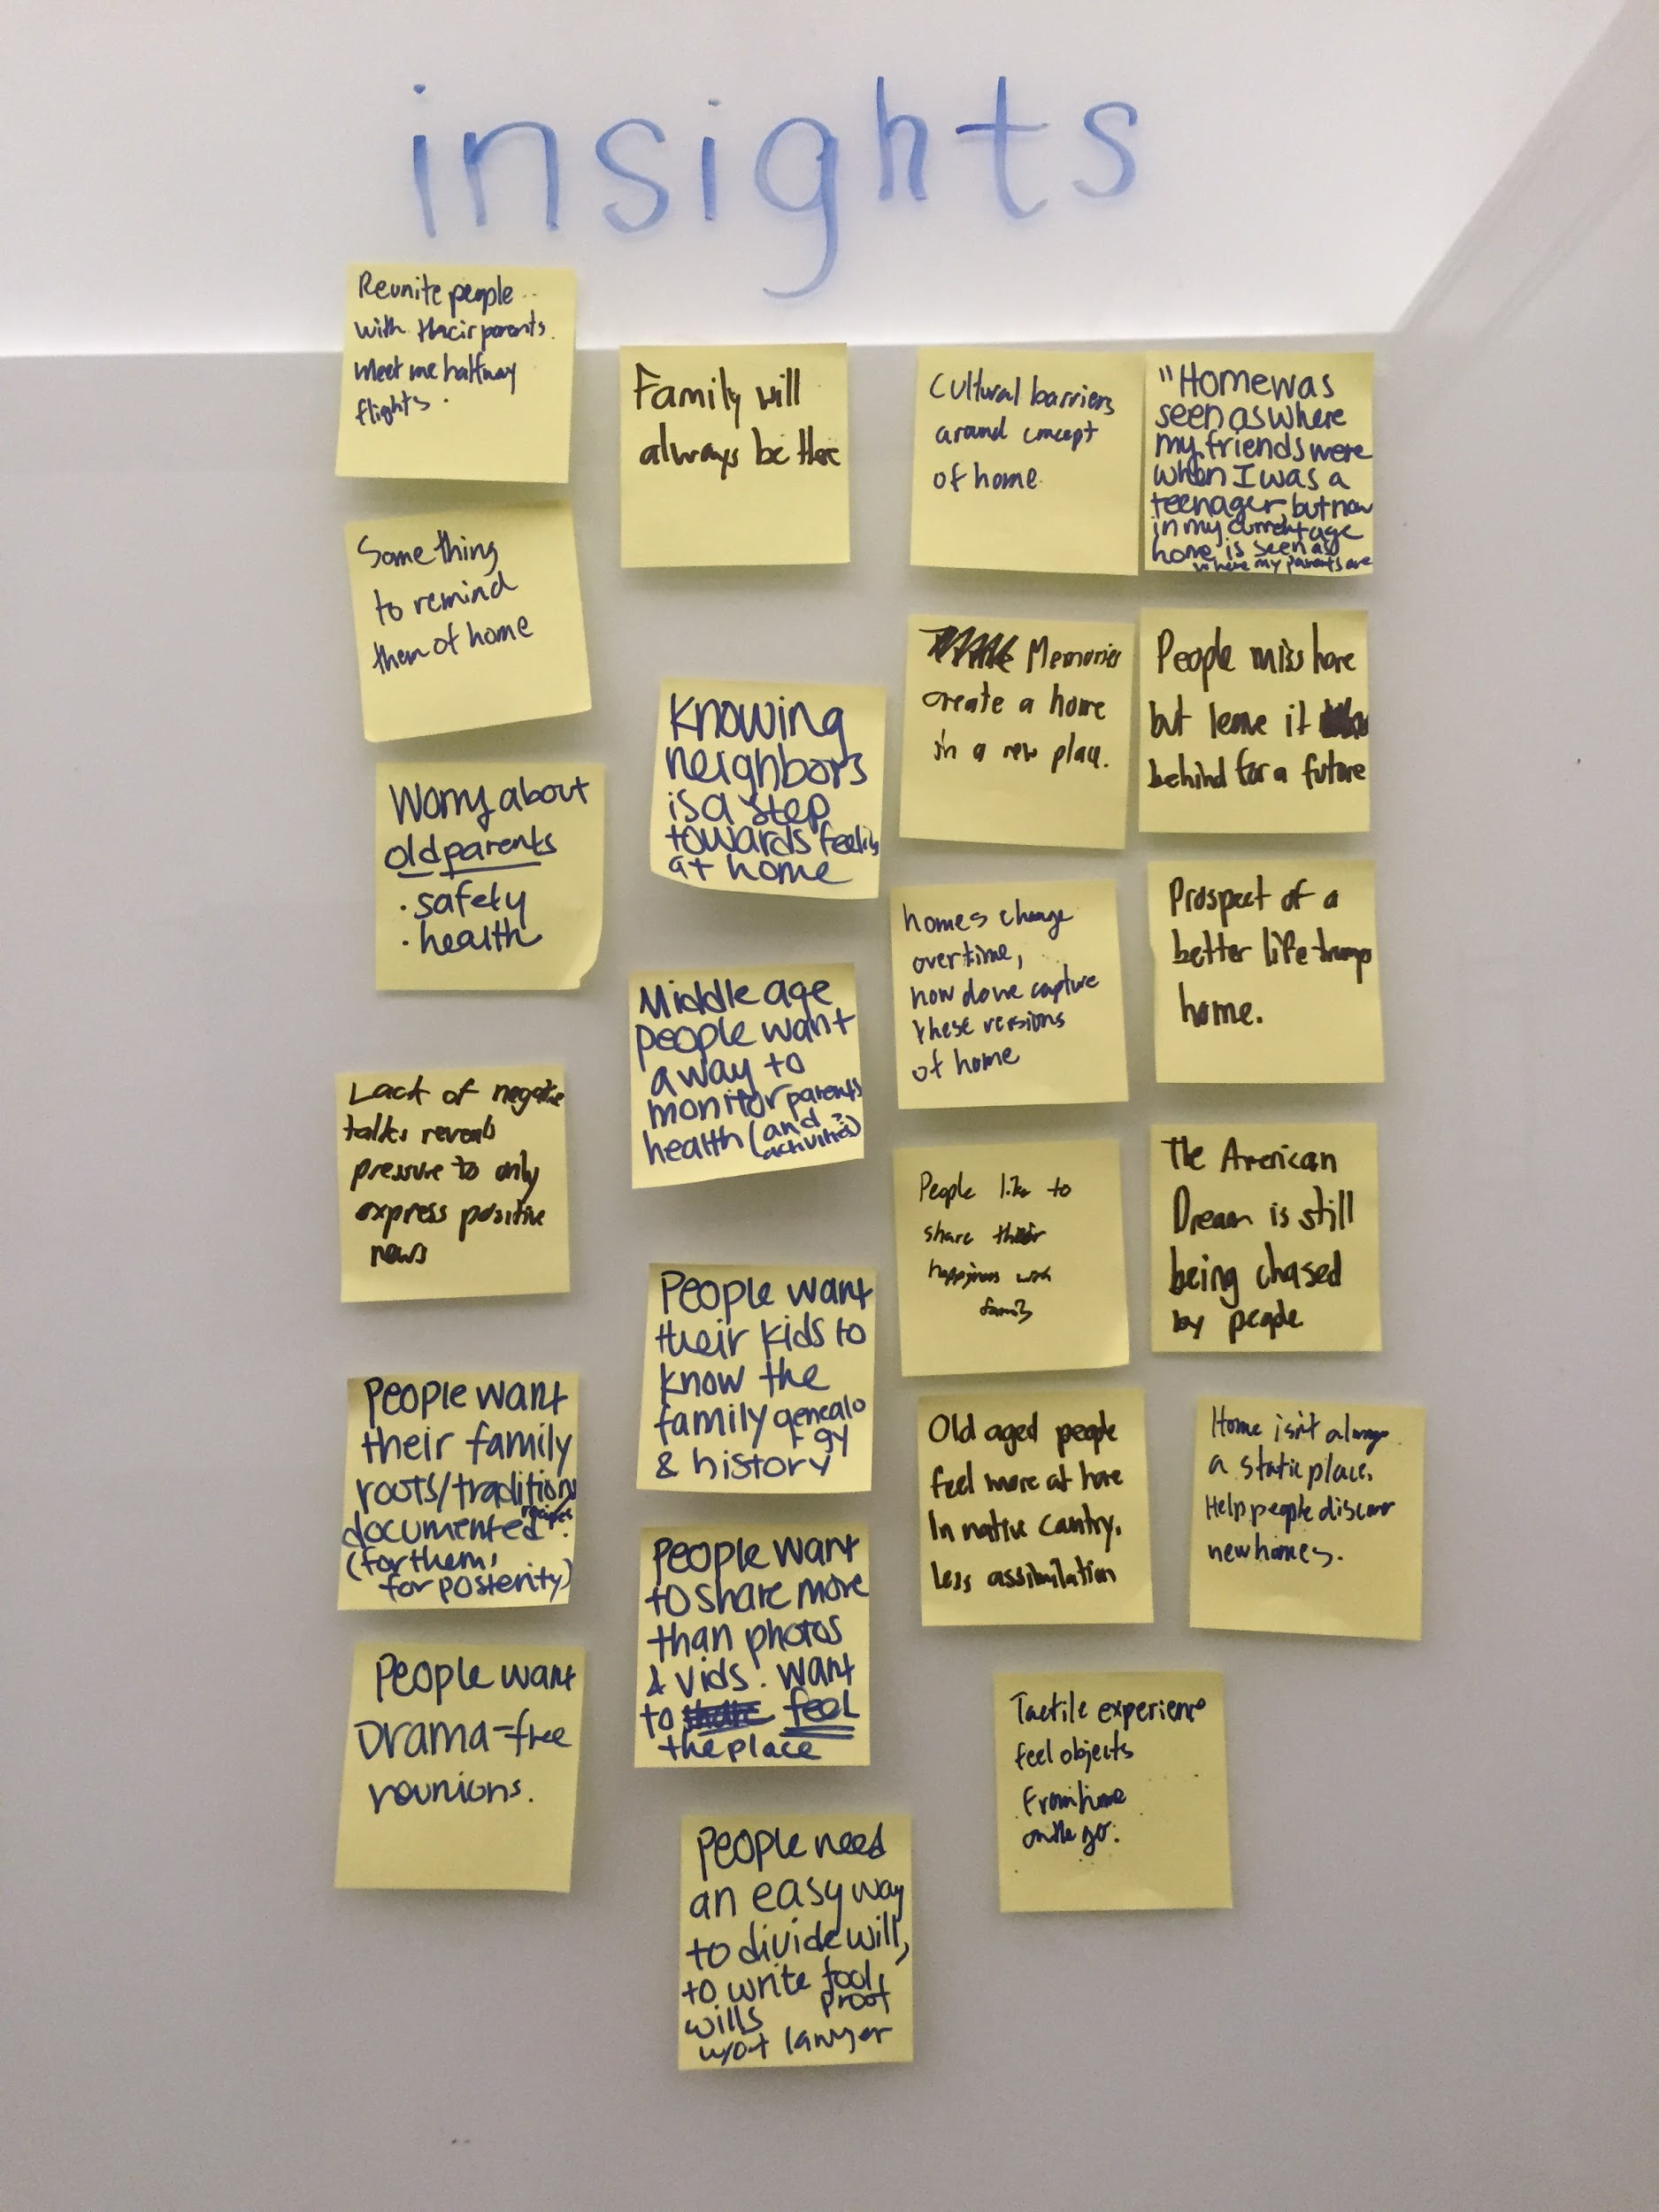 insights
Reunite people
with thacir parents.
Meet me halfway
flights.
Something
to remind
them of home
Worry about
old parents
· safety
· health
Lack of negative
talks reveals
pressure to only
express positive
news
People want
their family
roots/traditions
recipes
documented
(for them,
for posterity)
People want
Drama-free
reunions.
Family will
always be there
Knowing
neighbors
is a step
towards feeling
at home
Middle age
people want
a way to
monitor parents
health (and
activities?)
People want
their kids to
know the
family genealo
gy
& history
People want
to share more
than photos
& vids. Want
to feel
the place
People need
an easy way
to divide will,
to write fool
proof
wills
w/ot lawyer
Cultural barriers
around concept
of home
Memories
create a home
in a new place.
homes change
overtime,
how do we capture
these versions
of home
People like to
share their
happiness with
family
Old aged people
feel more at home
In native cantry.
Less assimilation
Tactile experience
feel objects
from home
on the go.
"Home was
seen as where
my friends were
when I was a
teenager, but now
in my current age
home is seen as
where my parents are
People miss home
but leave it
behind for a future
Prospect of a
better life trumps
home.
The American
Dream is still
being chased
by people
Home isn't always
a static place.
Help people discover
new homes.